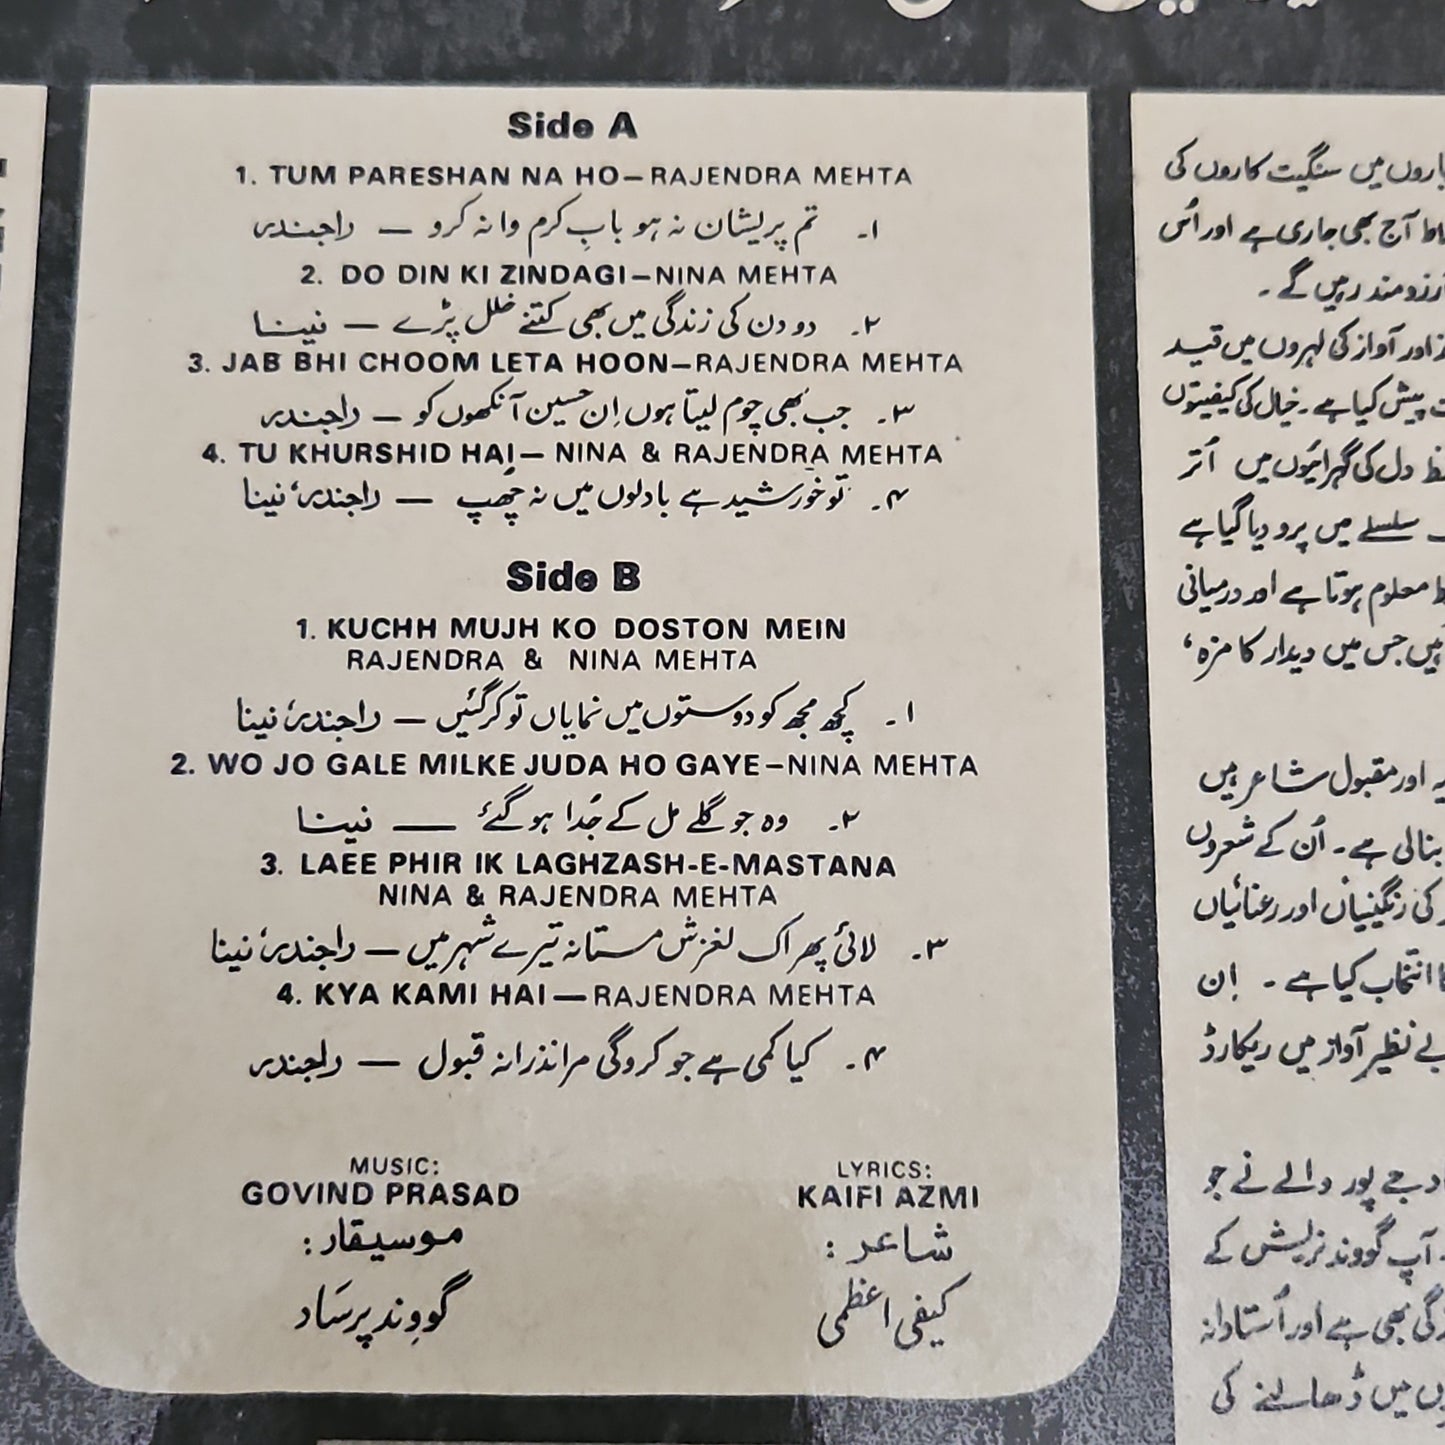 Side A
1. TUM PARESHAN NA HO–RAJENDRA MEHTA
۱۔ تم پریشان نہ ہو بابِ کرم وا نہ کرو — راجندر
2. DO DIN KI ZINDAGI–NINA MEHTA
۲۔ دو دن کی زندگی میں بھی کتنے خلل پڑے — نینا
3. JAB BHI CHOOM LETA HOON–RAJENDRA MEHTA
۳۔ جب بھی چوم لیتا ہوں اِن حسین آنکھوں کو — راجندر
4. TU KHURSHID HAI– NINA & RAJENDRA MEHTA
۴۔ تو خورشید ہے بادلوں میں نہ چھپ — راجندر، نینا
Side B
1. KUCHH MUJH KO DOSTON MEIN
RAJENDRA & NINA MEHTA
۱۔ کچھ مجھ کو دوستوں میں نمایاں تو کر گئیں — راجندر، نینا
2. WO JO GALE MILKE JUDA HO GAYE–NINA MEHTA
۲۔ وہ جو گلے مل کے جُدا ہو گئے — نینا
3. LAEE PHIR IK LAGHZASH-E-MASTANA
NINA & RAJENDRA MEHTA
۳۔ لائی پھر اک لغزش مستانہ تیرے شہر میں — راجندر، نینا
4. KYA KAMI HAI—RAJENDRA MEHTA
۴۔ کیا کمی ہے جو کرو گی مرا نذرانہ قبول — راجندر
MUSIC:
GOVIND PRASAD
موسیقار:
گووِند پرسَاد
LYRICS:
KAIFI AZMI
شاعر:
کیفی اعظمی
میں سنگیت کاروں کی
آج بھی جاری ہے اور اُس
رہیں گے۔
اور آواز کی لہروں میں قید
پیش کیا ہے۔ خیال کی کیفیتوں
دل کی گہرائیوں میں اُتر
سلسلے میں پرو دیا گیا ہے
معلوم ہوتا ہے اور درمیانی
ہیں جس میں دیدار کا مزہ،
اور مقبول شاعر ہیں
بنالی ہے۔ اُن کے شعروں
کی رنگینیاں اور رعنائیاں
انتخاب کیا ہے۔ اِن
بے نظیر آواز میں ریکارڈ
جے پور والے نے جو
آپ گووند نریش کے
بھی ہے اور اُستادانہ
میں ڈھالنے کی